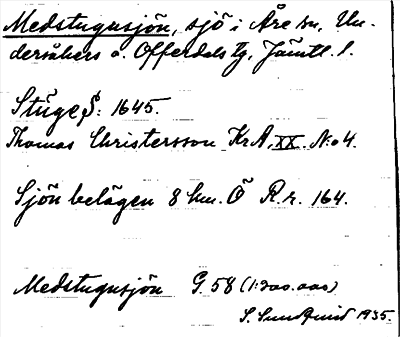 Medstugusjön, sjö i Åre sn, Un-
dersåkers o. Offerdals tg, Jämtl. l.
Stuge S: 1645.
Thomas Christersson Kr A, XX. N:o 4.
Sjön belägen 8 km. Ö R.r. 164.
Medstugusjön G. 58 (1:200.000)
S. Sundquist 1935.